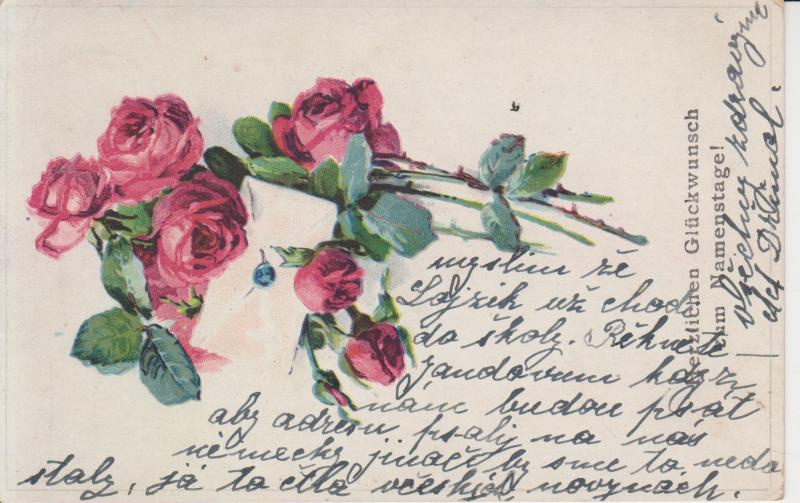 Herzlichen Glückwunsch
zum Namenstage!
myslim že
Lojzik už chodi
do školy. Řekněte
Jandovum když
nám budou psát
aby adresu psaly na nás
německy jináč by sme to nedo
staly, já to četla včeskjch novynach.
všechny zdravyme